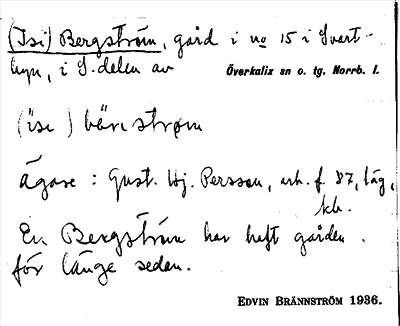 (Isi) Bergström, gård i no 15 i Svart-
byn, i S. delen av
Överkalix sn o. tg. Norrb. l.
(ïsi ) bäristrøm
ägare : Gust. Hj. Persson, arb. f. 87, läg,
kb.
En Bergström har haft gården
för länge sedan.
EDVIN BRÄNNSTRÖM 1936.